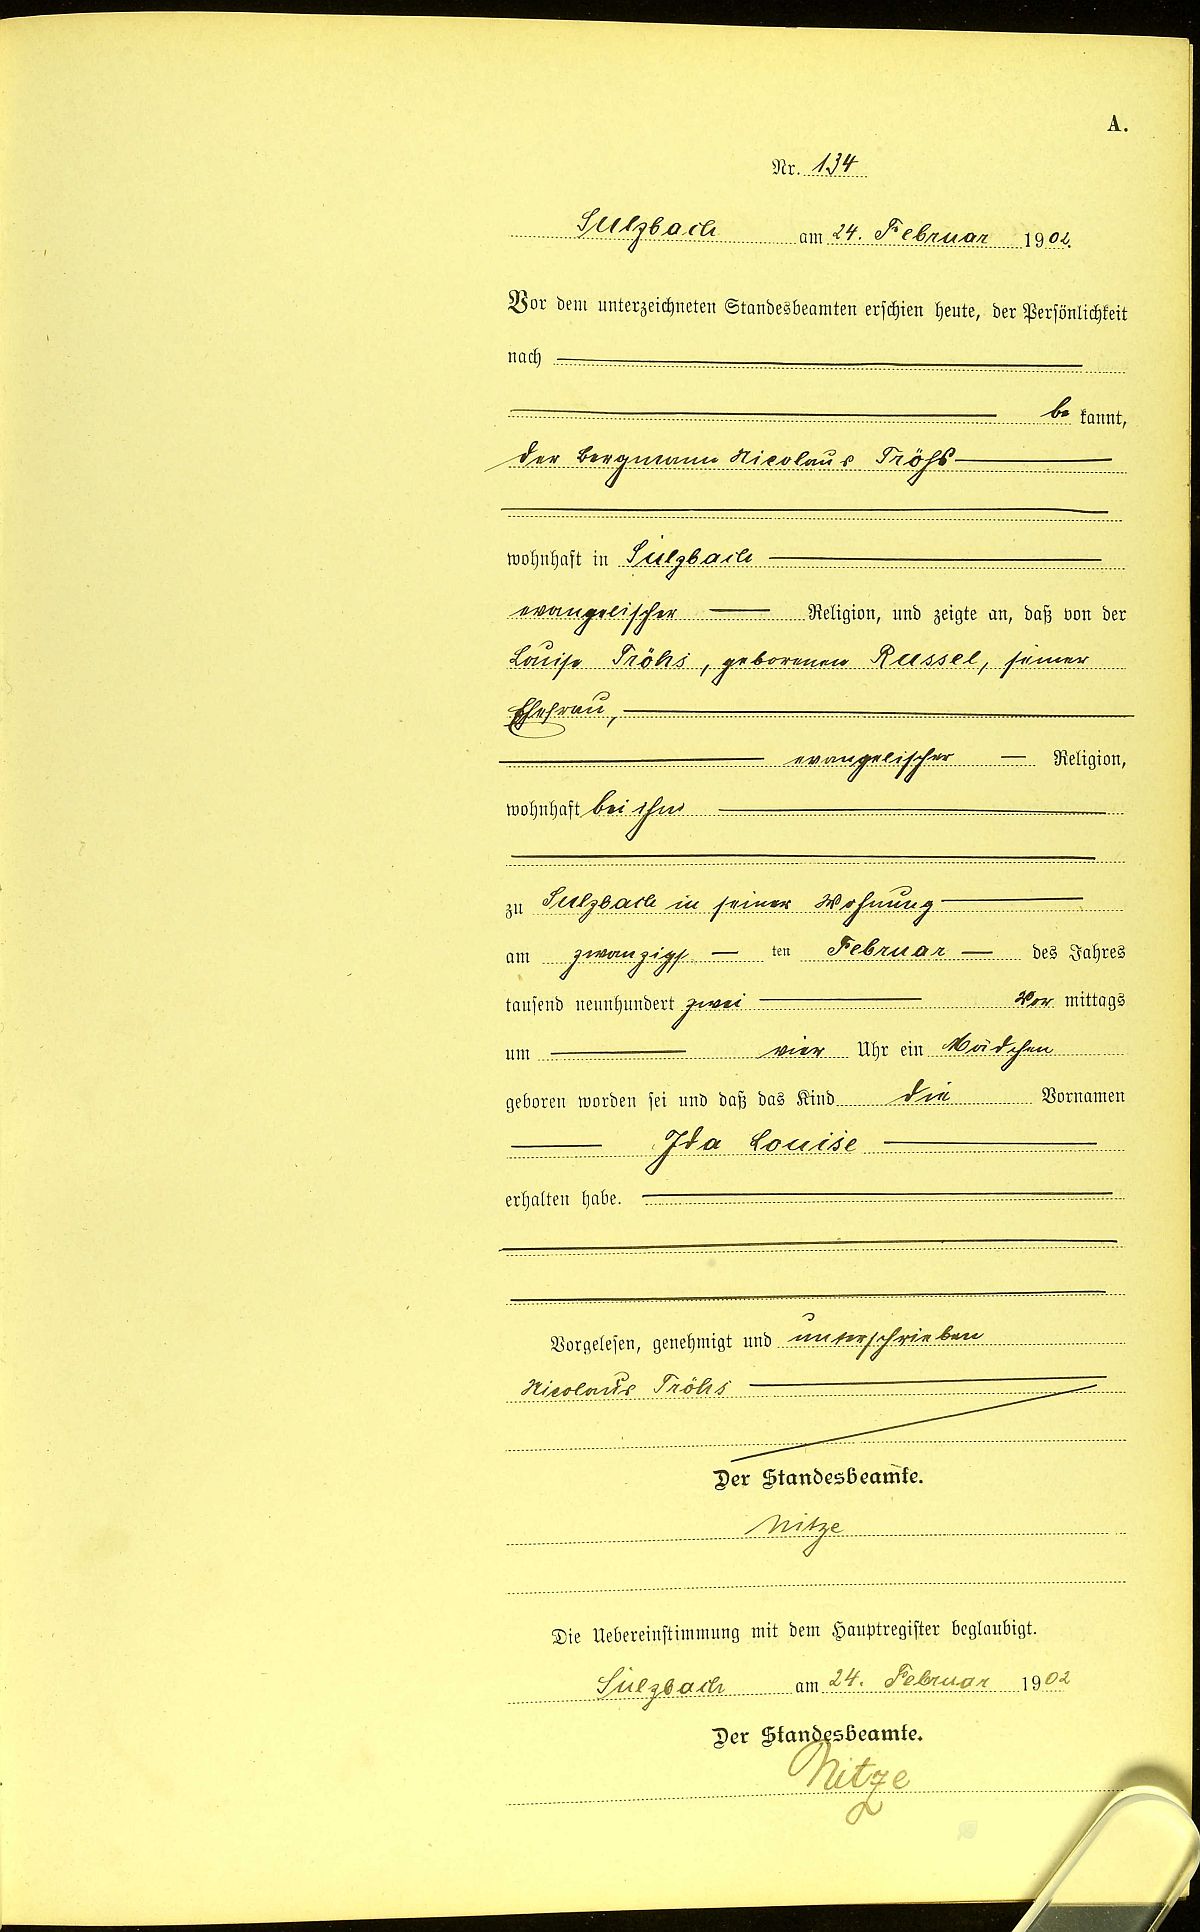 A.
Nr. 134
Sulzbach am 24. Februar 1902.
Vor dem unterzeichneten Standesbeamten erschien heute, der Persönlichkeit
nach
be kannt,
der Bergmann Nicolaus Tröhs
wohnhaft in Sulzbach
evangelischer Religion, und zeigte an, daß von der
Louise Tröhs, geborenen Russel, seiner
Ehefrau,
evangelischer Religion,
wohnhaft bei ihm
zu Sulzbach in seiner Wohnung
am zwanzigs ten Februar des Jahres
tausend neunhundert zwei Vor mittags
um vier Uhr ein Mädchen
geboren worden sei und daß das Kind die Vornamen
Ida Louise
erhalten habe.
Vorgelesen, genehmigt und unterschrieben
Nicolaus Tröhs
Der Standesbeamte.
Nitze
Die Uebereinstimmung mit dem Hauptregister beglaubigt.
Sulzbach am 24. Februar 1902
Der Standesbeamte.
Nitze